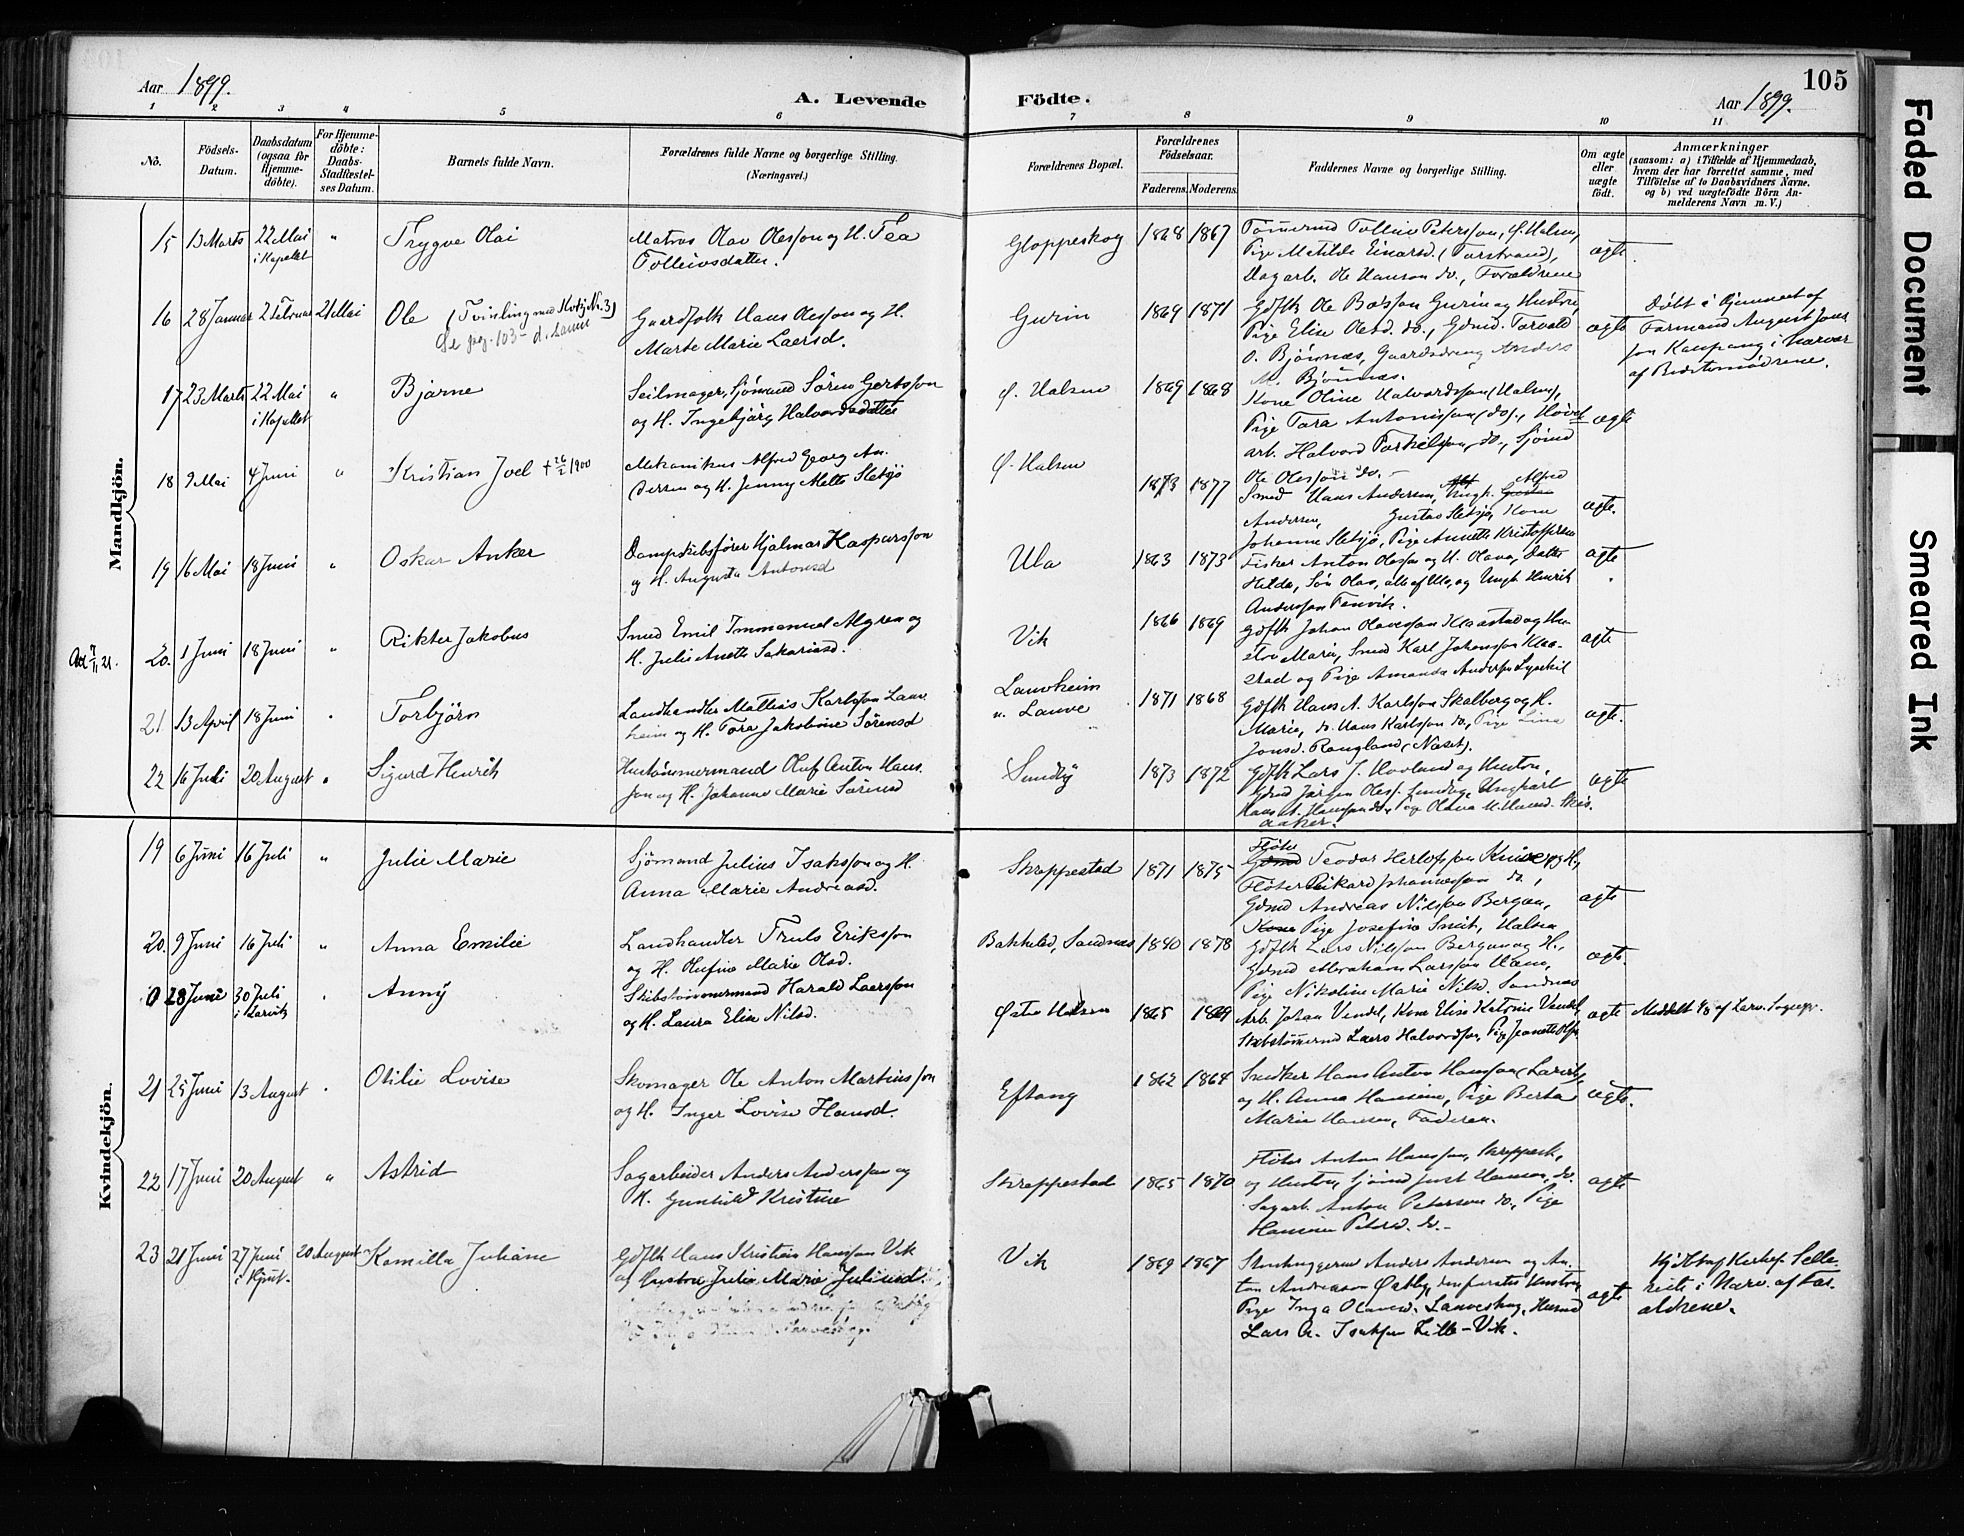 Aar 1899.
A. Levende
Födte.
Aar 1899.
105
1 2 3 4 5 6 7 8 9 10 11
No.
Födsels-
Datum.
Daabsdatum
(ogsaa for
Hjemme-
döbte).
For Hjemme-
döbte:
Daabs-
Stadfæstel-
ses Datum.
Barnets fulde Navn.
Forældrenes fulde Navne og borgerlige Stilling.
(Næringsvei.)
Forældrenes Bopæl.
Forældrenes
Födselsaar.
Faderens. Moderens.
Faddernes Navne og borgerlige Stilling.
Om ægte
eller
uægte
födt.
Anmærkninger
(saasom: a) i Tilfælde af Hjemmedaab,
hvem der har forrettet samme, med
Tilföielse af to Daabsvidners Navne.
og b) ved uægtefödte Börn An-
melderens Navn m. V.)
Mandkjön.
15 13 Marts 22 Mai " Trygve Olai
i Kapellet
Matros Olav Olesson og H. Tea
Tolleivsdatter.
Gloppeskog 1868 1867
Tømermd Tolleiv Petersson, Ø. Halsen,
Pige Matilde Einarsd. (Torstrand),
Dagarb. Ole Hanson do., Forældrene
ægte
16 28 Januar 2 Februar 21 Mai Ole (Tvilling med Kvkj Nr. 3)
Se pag. 103
Gaardfolk Hans Olesson og H.
Marte Marie Laersd.
Gurin 1869 1871
Gdflk Ole Gurin og Hustru,
Pige Elise Olesd. do., Gdmd. Torvald
O. Bjönnes, Gaardsdreng Anders
M. Bjönnes.
ægte
Döbt i Hjemmet af
Formand August Jons
son Kaupang i Nærvær
af Bedstemödrene.
17 23 Marts 22 Mai " Bjarne
i Kapellet
Seilmager, Sjömand Sören Gertsson
og H. Ingebjörg Halvordsdatter
Ø. Halsen 1869 1868
Kone Oline Halvordsson (Halsen),
Pige Tora Antonisson (do), Hövl
arb. Halvord Torkelsson, do., Sjömd
Ole Olesson do.
ægte
18 9 Mai 4 Juni " Kristian Joel + 26/2 1900
Mekanikus Alfred Georg An-
dersen og H. Jenny Mette Sletsjö
Ø. Halsen 1873 1877
Smed Hans Andersen, Ungk. Alfred
Andersen, Gustav Sletsjö, Kone
Johanne Sletsjö, Pige Annette Kristoffersen
ægte.
19 16 Mai 18 Juni " Oskar Anker
Dampskibsförer Hjalmar Kaspersson
og H. Augusta Antonsd
Ula 1863 1873
Fisker Anton Olesson og H. Olava, Datter
Hilda, Sön Olav, alle af Ula, og Ungk. Henrik
Andersson Fenvik.
ægte
20. 1 Juni 18 Juni " Rikter Jakobus
Smed Emil Immanuel Algren og
H. Julie Anette Sakariasd.
Vik 1866 1869
Gdflk Johan Olavesson Klaastad og Hu-
stru Marie, Smed Karl Johansson Klaa-
stad og Pige Amanda Anderson
ægte
21 13 April 18 Juni " Torbjörn
Landhandler Mattias Karlsson Lauv-
heim og H. Tora Jakobine Sörensd
Lauvheim
u. Lauve 1871 1868
Gdflk Hans A. Karlsson Skalberg og H.
Marie, do. Hans Karlsson do., Pige Lina
Jonsd. Rangland (Næset).
ægte.
22 16 Juli 20 August " Sigurd Henrik
Hustömmermand Oluf Anton Hans-
son og H. Johanne Marie Sörensd
Sundby 1873 1872
Gdflk Lars J. Hovland og Hustru,
Gdmd Jörgen Oless. Sundby, Ungkarl
Hans A. Hansson do., Pige Olava M. Hansd. Skis-
aaker.
ægte
Kvindekjön.
19 6 Juni 16 Juli " Julie Marie
Sjömand Julius Isaksson og H.
Anna Marie Andreasd.
Skreppestad 1871 1875
Flöter Teodor Herlofsson og H,
Flöter Rikard Johannesson do.,
Gdmd Andreas Nilsson Bergan,
Pige Josefine Smit, Halsen
ægte
20. 9 Juni 16 Juli " Anna Emilie
Landhandler Truls Eriksson
og H. Olufine Marie Olsd.
Bakkeled, Sandnæs 1840 1878
Gdflk Lars Nilsson Bergan og H.,
Gdmd Abraham Larsson Hæm,
Pige Nikoline Marie Nilsd. Sandnæs
ægte.
0 28 Juni 30 Juli " Anny
i Larvik
Skibstömmermand Harald Laersson
og H. Laura Elise Nilsd.
Østre Halsen 1865 1869
Arb. Johan Vendel, Kone Elise Katrine Vendel,
Skibstömermd Laers Halvordson, Pige Jeanette
ægte
Meddelt 1/8 af Larv. Sognepr.
21 25 Juni 13 August " Otilie Lovise
Skomager Ole Anton Martinsson
og H. Inger Lovise Hansd.
Eftang 1862 1864
Snedker Hans Anton Hanson (Larvik),
og H. Anna Hansine, Pige Berta
Marie Hansen, Faderen.
ægte.
22 17 Juni 20 August " Astrid
Sagarbeider Anders Andersson og
H. Gunhild Kristine
Skreppestad 1865 1870
Flöter Anton Hansson, Skreppest,
og Hustru, Sjömd Just Hansen, do.
Sagarb. Anton Peterson do., Pige
Hansine Petersd. do.
ægte
23 21 Juni 27 Juni 20 August Kamilla Juliane
i Hjmt.
Gdflk Hans Kristian Hansson Vik
og Hustru Julie Marie Juliusd.
Vik 1869 1867
Stenhuggerne Anders Andersen og An-
ton Andreason Østby, den förstes Hustru,
Pige Inga Olavesd. Lauveskog, Husmd
Lars A. Isaksen Lille-Vik.
ægte
Hjdbt af
i Nærv. af For-
ældrene.
Faded Document
Smeared Ink